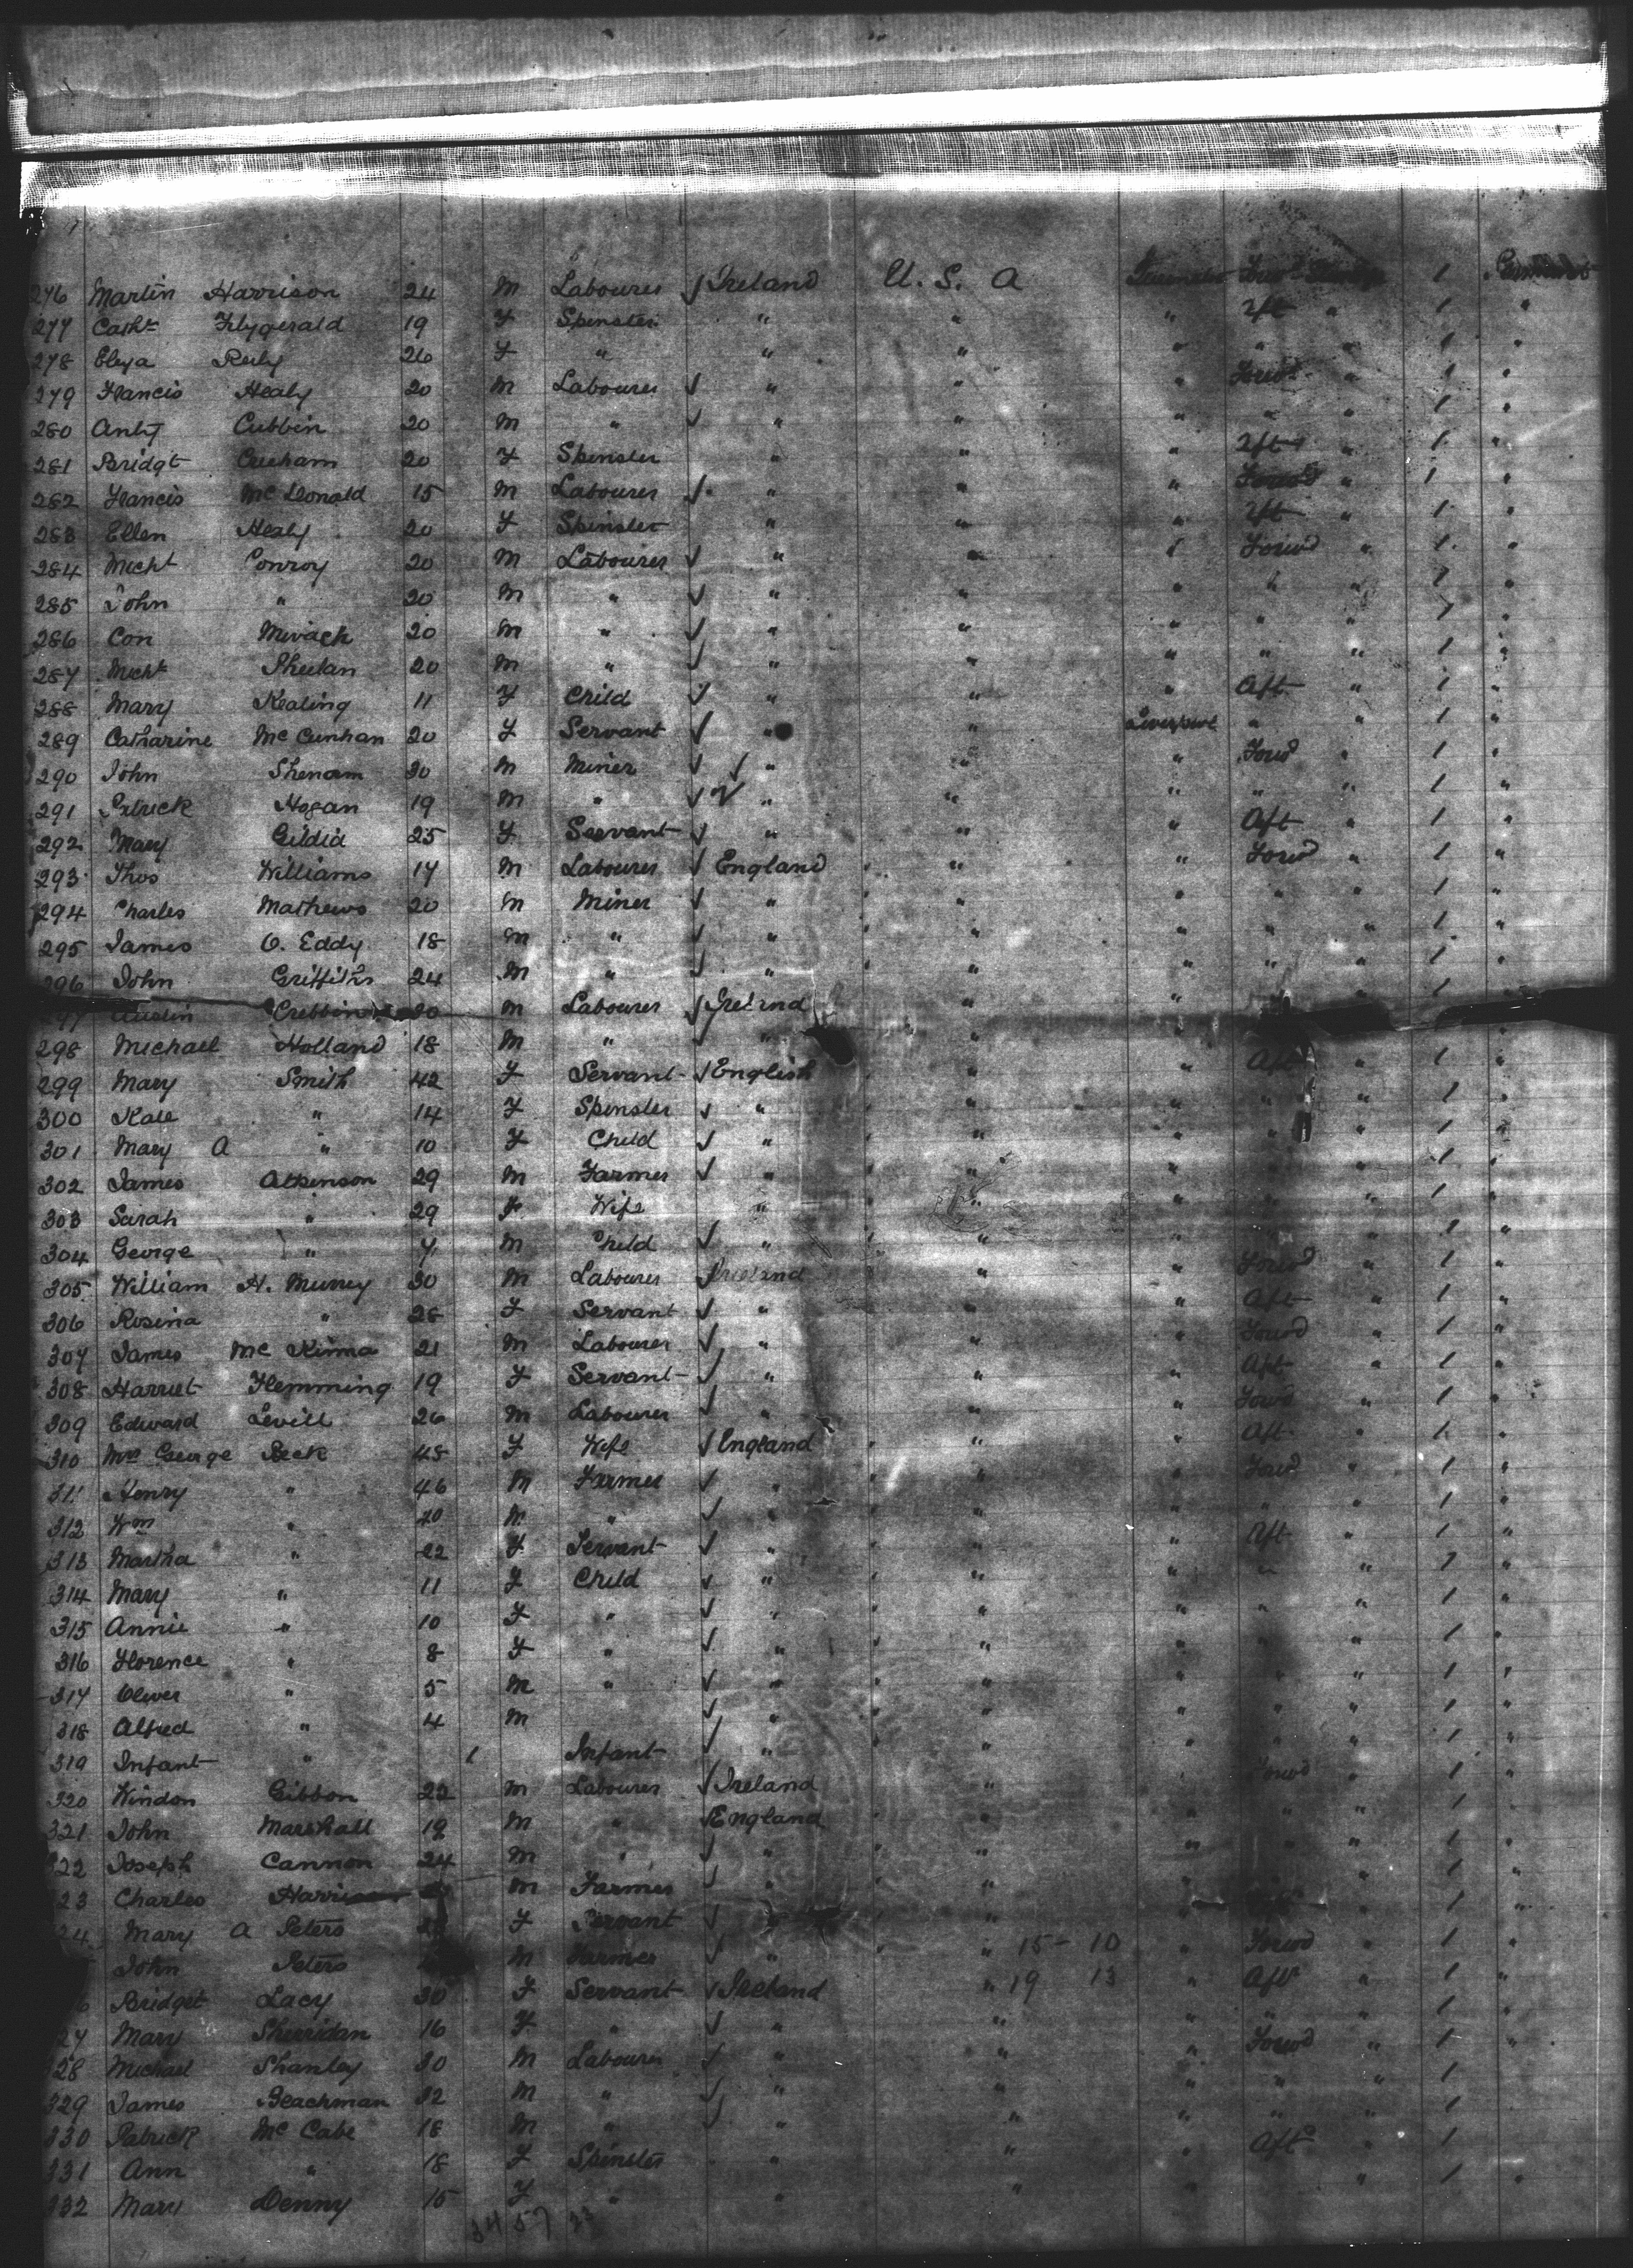 276 Martin Harrison 24 M Labourer √ Ireland U. S. A 1
277 Cathe Fitzgerald 19 F Spinster " " " Aft " 1 "
278 Eliza Reily 26 F " " " " " " 1 "
279 Francis Healy 20 M Labourer √ " " " Forwd " 1 "
280 Anty Cubbin 20 M " √ " " " " " 1 "
281 Bridgt 20 F Spinster " " " Aft " 1 "
282 Francis McDonald 15 M Labourer √ " " " Forwd " 1 "
283 Ellen Healy 20 F Spinster " " " Aft " 1 "
284 Michl Conroy 20 M Labourer √ " " " Forwd " 1 "
285 John " 20 M " √ " " " " " 1 "
286 Con 20 M " √ " " " " " 1 "
287 Michl Sheelan 20 M " √ " " " " " 1 "
288 Mary Kealing 11 F Child √ " " " Aft " 1 "
289 Catharine 20 F Servant √ " " Liverpool " " 1 "
290 John 30 M Miner √ √ " " " Forwd " 1 "
291 Patrick Hogan 19 M " √ √ " " " " " 1 "
292 Mary Gildia 25 F Servant √ " " " Aft " 1 "
293 Thos Williams 17 M Labourer √ England " " Forwd " 1 "
294 Charles Mathews 20 M Miner √ " " " " " 1 "
295 James O. Eddy 18 M " √ " " " " " 1 "
296 John Griffiths 24 M " √ " " " " " 1 "
297 Austin Crebbin 20 M Labourer √ Ireland " " 1
298 Michael Holland 18 M " √ " "
299 Mary Smith 42 F Servant √ English " " Aft " 1 "
300 Kate " 14 F Spinster √ " " " " " 1 "
301 Mary A " 10 F Child √ " " " " " 1 "
302 James Atkinson 29 M Farmer √ " " " " " 1 "
303 Sarah " 29 F Wife " " " " " 1 "
304 George " 7 M Child √ " " " " " 1 "
305 William H. Murrey 30 M Labourer √ Ireland " " Forwd " 1 "
306 Rosina " 28 F Servant √ " " " Aft " 1 "
307 James McKinna 21 M Labourer √ " " " Forwd " 1 "
308 Harriet Flemming 19 F Servant √ " " " Aft " 1 "
309 Edward Levill 26 M Labourer √ " " " Forwd " 1 "
310 Mrs George Peck 45 F Wife √ England " " Aft " 1 "
311 Henry " 46 M Farmer √ " " " Forwd " 1 "
312 Wm " 40 M " √ " " " " " 1 "
313 Martha " 22 F Servant √ " " " Aft " 1 "
314 Mary " 11 F Child √ " " " " " 1 "
315 Annie " 10 F " √ " " " " " 1 "
316 Florence " 8 F " √ " " " " " 1 "
317 Oliver " 5 M " √ " " " " " 1 "
318 Alfred " 4 M " √ " " " " " 1 "
319 Infant " 1 Infant √ " " " " " 1 "
320 Windon Gibbon 22 M Labourer √ Ireland " " Forwd " 1 "
321 John Marshall 19 M " √ England " " " " 1 "
322 Joseph Cannon 24 M " √ " " " " " 1 "
23 Charles Harrison M Farmer √ " " " " " 1 "
24 Mary A Peters F Servant √ " " " " 1 "
John Peters M Farmer √ " " 15 - 10 " Forwd " 1 "
6 Bridget Lacy 30 F Servant √ Ireland " 19 13 " Aft " 1 "
27 Mary Sherridan 16 F " √ " " " " " 1 "
28 Michael Shanley 30 M Labourer √ " " " Forwd " 1 "
329 James Beachman 32 M " √ " " " " " 1
330 Patrick McCabe 18 M " √ " " " " " 1
331 Ann " 18 F Spinster " " " Aft " 1
332 Mary Denny 15 F " " " " " 1 "